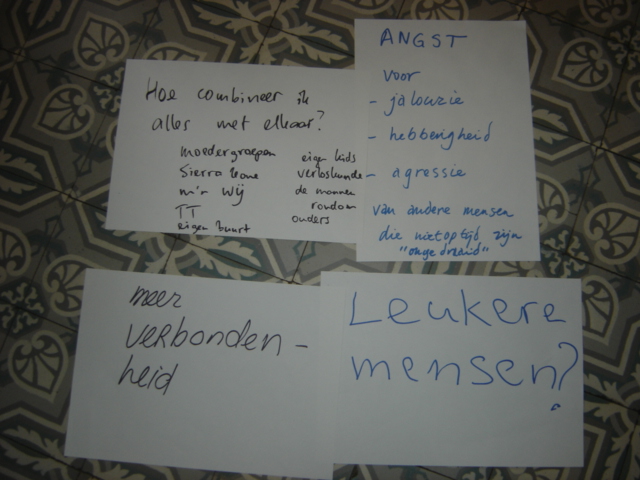 Hoe combineer ik
alles met elkaar?
moedergroepen
Sierra Leone
m'n wij
TT
eigen buurt
eigen kids
verloskunde
de mannen
rondom
ouders
ANGST
voor
- jalouzie
- hebberigheid
- agressie
van andere mensen
die niet op tijd zijn
meer
verbonden-
heid
Leukere
mensen?